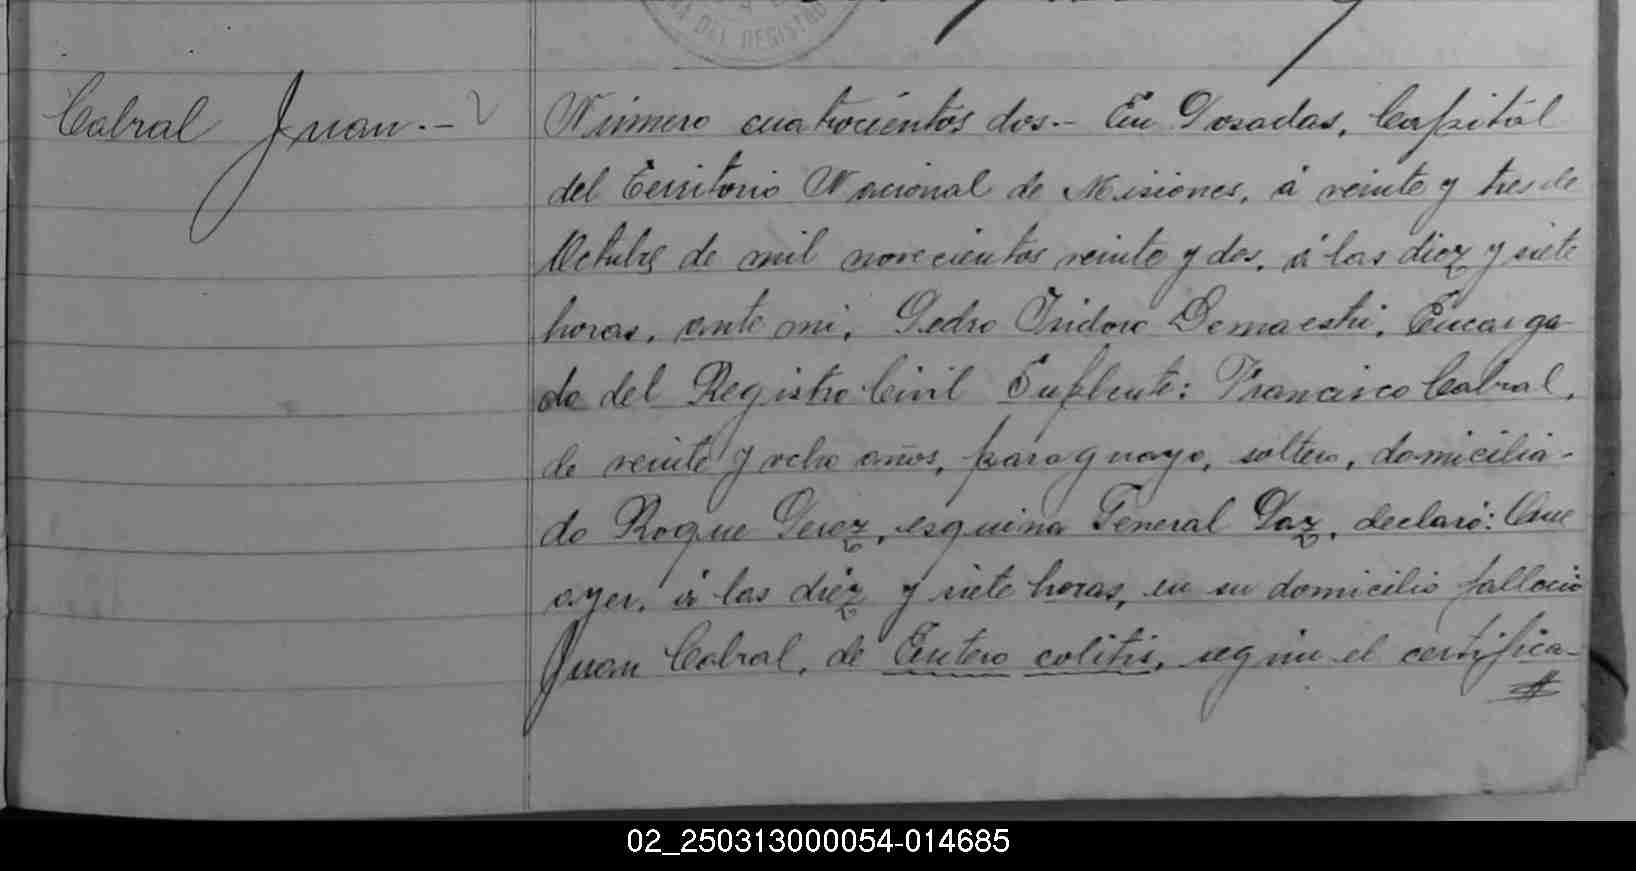 DEL REGISTRO
Cabral Juan.-
Número cuatrocientos dos.- En Posadas, Capital
del Territorio Nacional de Misiones, á veinte y tres de
Octubre de mil novecientos veinte y dos, á las diez y siete
horas, ante mi, Pedro Isidoro Demaestri, Encarga
do del Registro Civil Suplente: Francisco Cabral,
de veinte y ocho años, paraguayo, soltero, domicilia-
do Roque Perez, esquina General Paz, declaró: Que
ayer, á las diéz y siete horas, en su domicilio falleció
Juan Cabral, de Entero colitis, según el certifica-
02_250313000054-014685